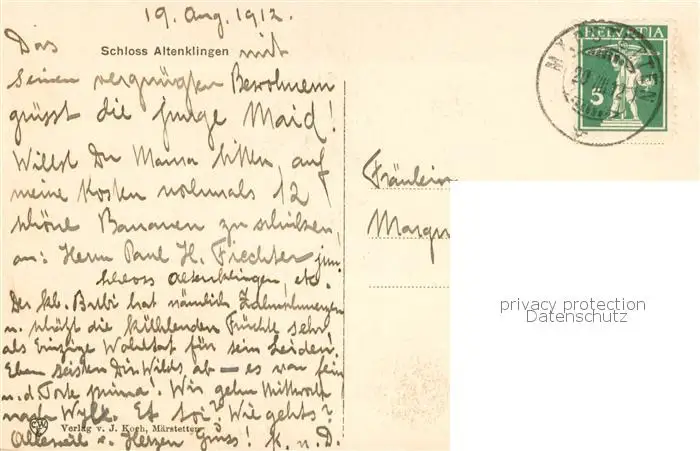 19. Aug. 1912.
Das Schloss Altenklingen mit
seinen vergnügten Bewohnern
grüsst die junge Maid!
Willst Du Mama bitten, auf
meine Kosten nochmals 12
schöne Bananen zu schicken,
an: Herrn Paul H. Fiechter jun.
Schloss Altenklingen, etc.
Der kl. Bubi hat nämlich Zahnschmerzen
u. schätzt die kühlenden Früchte sehr,
als Einzige Wohltat für sein Leiden.
Eben reisten Dir. Wilds ab – es war fein
u. d. Torte prima! Wir gehn Mittwoch
nach Wyl. Et toi? Wie gehts?
Verlag v. J. Koch, Märstetten
Alleweil e. Herzen Gruss! K. u. D.
HELVETIA
5
MÄRSTETTEN
20 VIII 12
Fräulein
Margu
privacy protection
Datenschutz